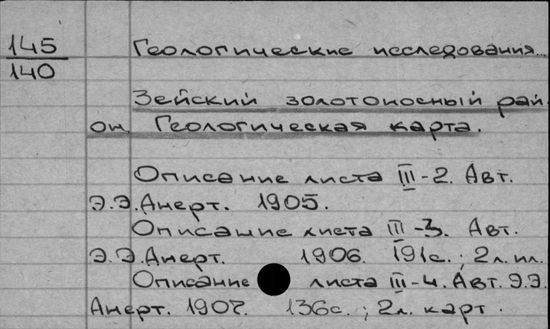 145
140
Геологические исследования...
Зейский золотоносный рай
он. Геологическая карта.
Описание листа III-2. Авт.
Э.Э.Анерт. 1905.
Описание листа III-3. Авт.
Э.Э.Анерт. 1906. 191с.; 2л.ил.
Описание листа III-4. Авт. Э.Э.
Анерт. 1907. 136с.; 2л. карт.